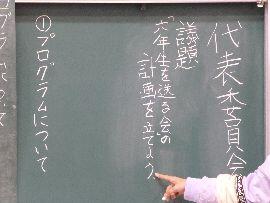 代表委員会
議題
「六年生を送る会」の
計画を立てよう。
①プログラムについて